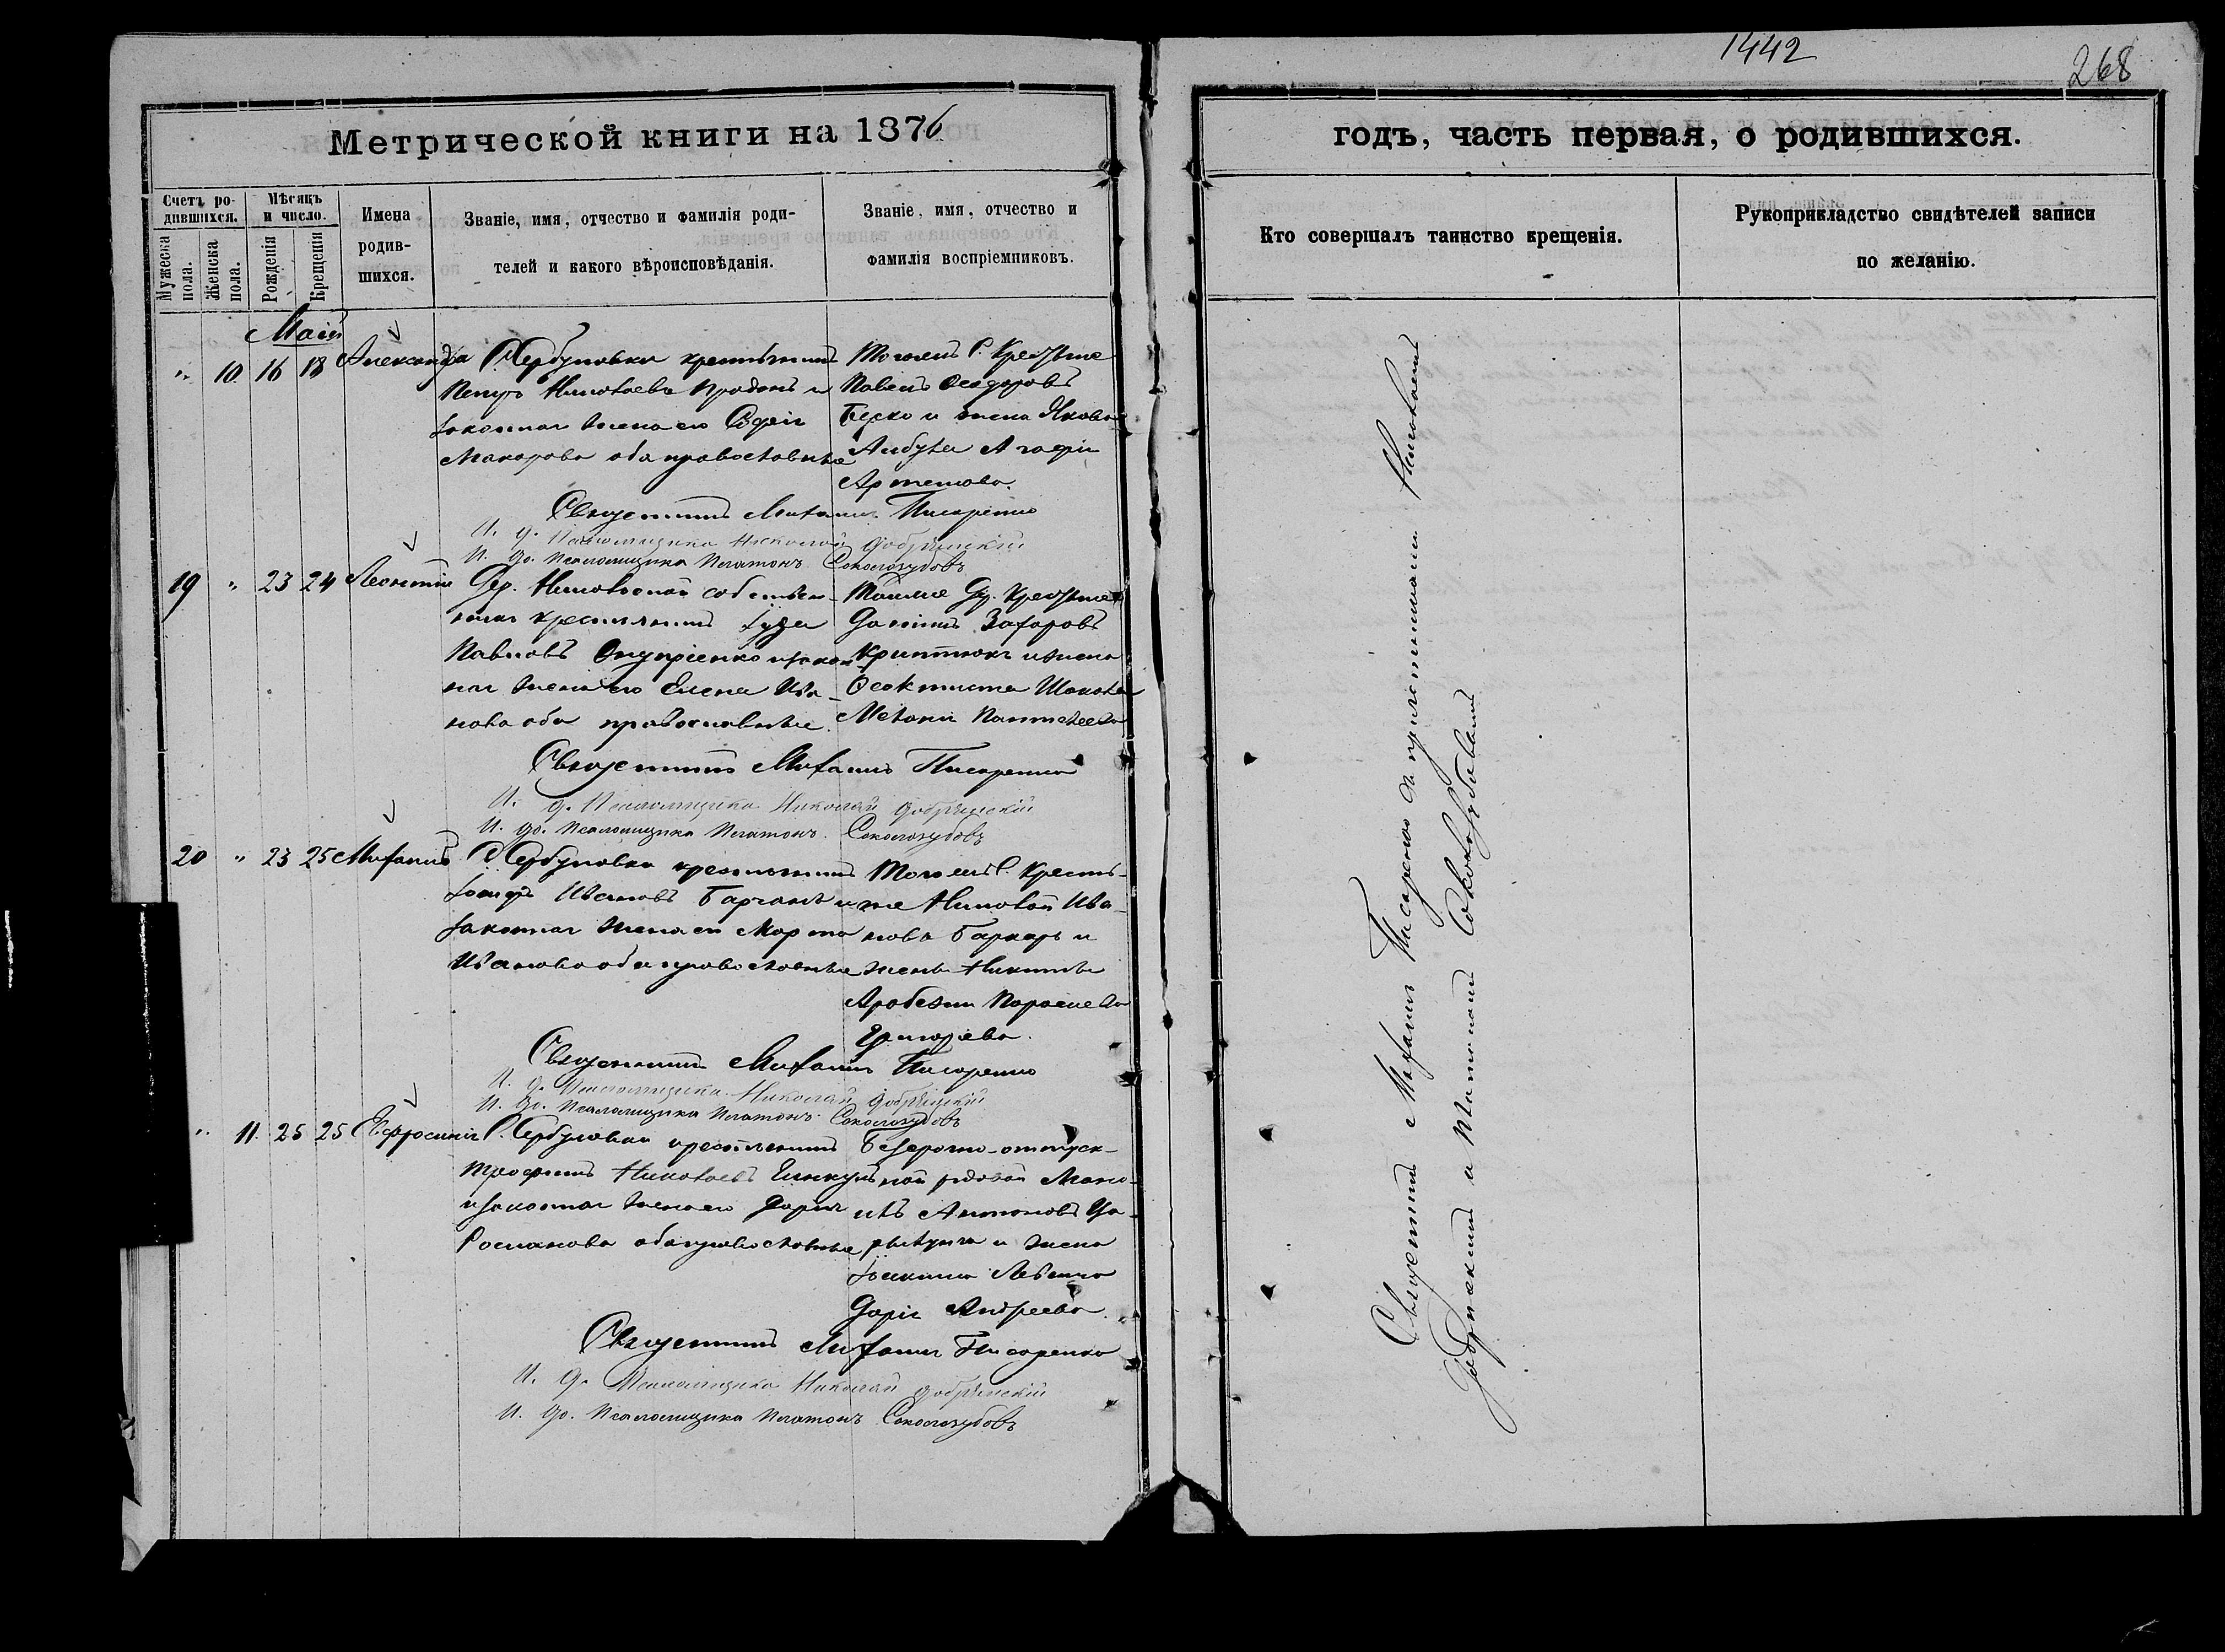 1442
268
Метрической книги на 1876
годъ, часть первая, о родившихся.
Счетъ ро-
дившихся.
Мѣсяцъ
и число.
Мужеска
пола.
Женска
пола.
Рожденія
Крещенія
Имена
родив-
шихся.
Званіе, имя, отчество и фамилія роди-
телей и какого вѣроисповѣданія.
Званіе, имя, отчество и
фамилія воспріемниковъ.
Кто совершалъ таинство крещенія.
Рукоприкладство свидѣтелей записи
по желанію.
Май
" 10. 16 18 Александра
С. Сербуловки крестьянинъ
Петръ Николаевъ Проданъ и
законная жена его Софія
Макарова оба православные
Тогожъ С. Крестьяне
Павелъ Феодоровъ
и жена Якова
Агафія
Артемова.
Священникъ Михаилъ Писаренко
И. д. Псаломщика Николай Добрянскій
И. до. Псаломщика Платонъ Соколозубовъ
19 " 23 24 Леонтій
Дер. Николаевки собствен-
никъ крестьянинъ Іуда
Павловъ Онуприенко и закон-
ная жена его Елена Ива-
нова оба православные.
Тойже Др. Крестьяне
Даніилъ Захаровъ
и жена
Феоктиста
Меланія Пантелеева
Священникъ Михаилъ Писаренко
И. д. Псаломщика Николай Добрянскій
И. до. Псаломщика Платонъ Соколозубовъ
20 " 23 25 Михаилъ
С. Сербуловки крестьянинъ
Іосифъ Ивановъ Барганъ и
законная жена его Марта
Иванова оба православные
Тогожъ С. Кресть-
яне Николай Ива-
новъ Баркарь и
жена Никиты
Параскева
Григорьева.
Священникъ Михаилъ Писаренко
И. д. Псаломщика Николай Добрянскій
И. до. Псаломщика Платонъ Соколозубовъ
" 11. 25 25 Ефросинія
С. Сербуловки крестьянинъ
Трофимъ Николаевъ
и законная жена его Дарія
Романова оба православные
Безсрочно-отпуск-
ной рядовой Мано-
илъ Антоновъ
и жена
Іоакима
Дарія Андреева.
Священникъ Михаилъ Писаренко
И. д. Псаломщика Николай Добрянскій
И. до. Псаломщика Платонъ Соколозубовъ
Священникъ Михаилъ Писаренко съ причетниками Николаемъ
Добрянскимъ и Платономъ Соколозубовымъ